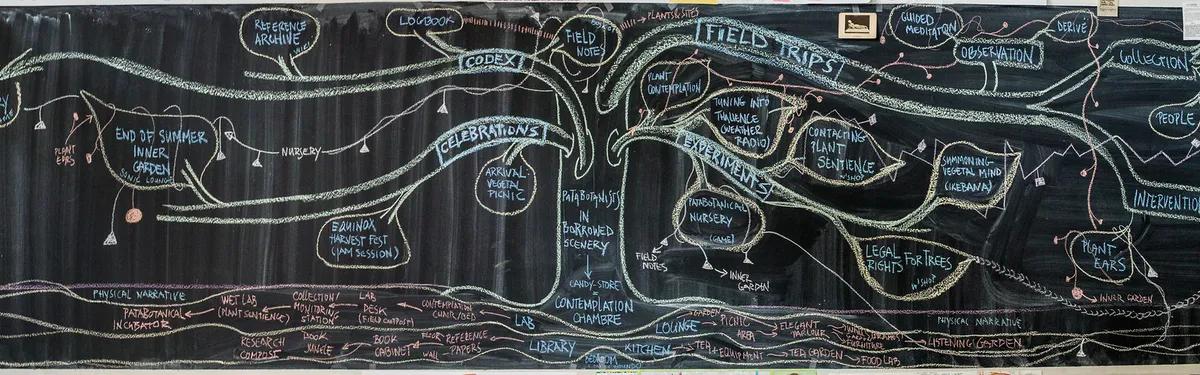 REFERENCE
ARCHIVE
LOGBOOK
CODEX
FIELD
NOTES
PLANTS & SITES
FIELD TRIPS
GUIDED
MEDITATION
OBSERVATION
DERIVE
COLLECTION
PEOPLE
END OF SUMMER
INNER
GARDEN
SONIC LOUNGE
PLANT
EARS
NURSERY
CELEBRATIONS
ARRIVAL
VEGETAL
PICNIC
EQUINOX
HARVEST FEST
(JAM SESSION)
PATABOTANISTS
IN
BORROWED
SCENERY
CANDY-STORE
CONTEMPLATION
CHAMBRE
PLANT
CONTEMPLATION
TUNING INTO
THALIENCE
(WEATHER
RADIO)
CONTACTING
PLANT
SENTIENCE
W'SHOP
EXPERIMENTS
SUMMONING
VEGETAL MIND
(IKEBANA)
INTERVENTIO
PATABOTANICAL
NURSERY
(GAME)
FIELD
NOTES
INNER
GARDEN
LEGAL RIGHTS FOR TREES
W'SHOP
PLANT
EARS
INNER GARDEN
PHYSICAL NARRATIVE
PATABOTANICAL
INCUBATOR
WET LAB
(PLANT SENTIENCE)
COLLECTION/
MONITORING
STATION
LAB
DESK
CONTEMPLATION
CHAIR/BED
LAB
LOUNGE
GARDEN
PICNIC
AREA
ELEGANT
PARLOUR
FURNITURE
PHYSICAL NARRATIVE
LISTENING GARDEN
RESEARCH
COMPOST
BOOK
JUNGLE
BOOK
CABINET
WALL
REFERENCE
PAPERS
LIBRARY
KITCHEN
BEDROOM
TEA EQUIPMENT
TEA GARDEN
FOOD LAB